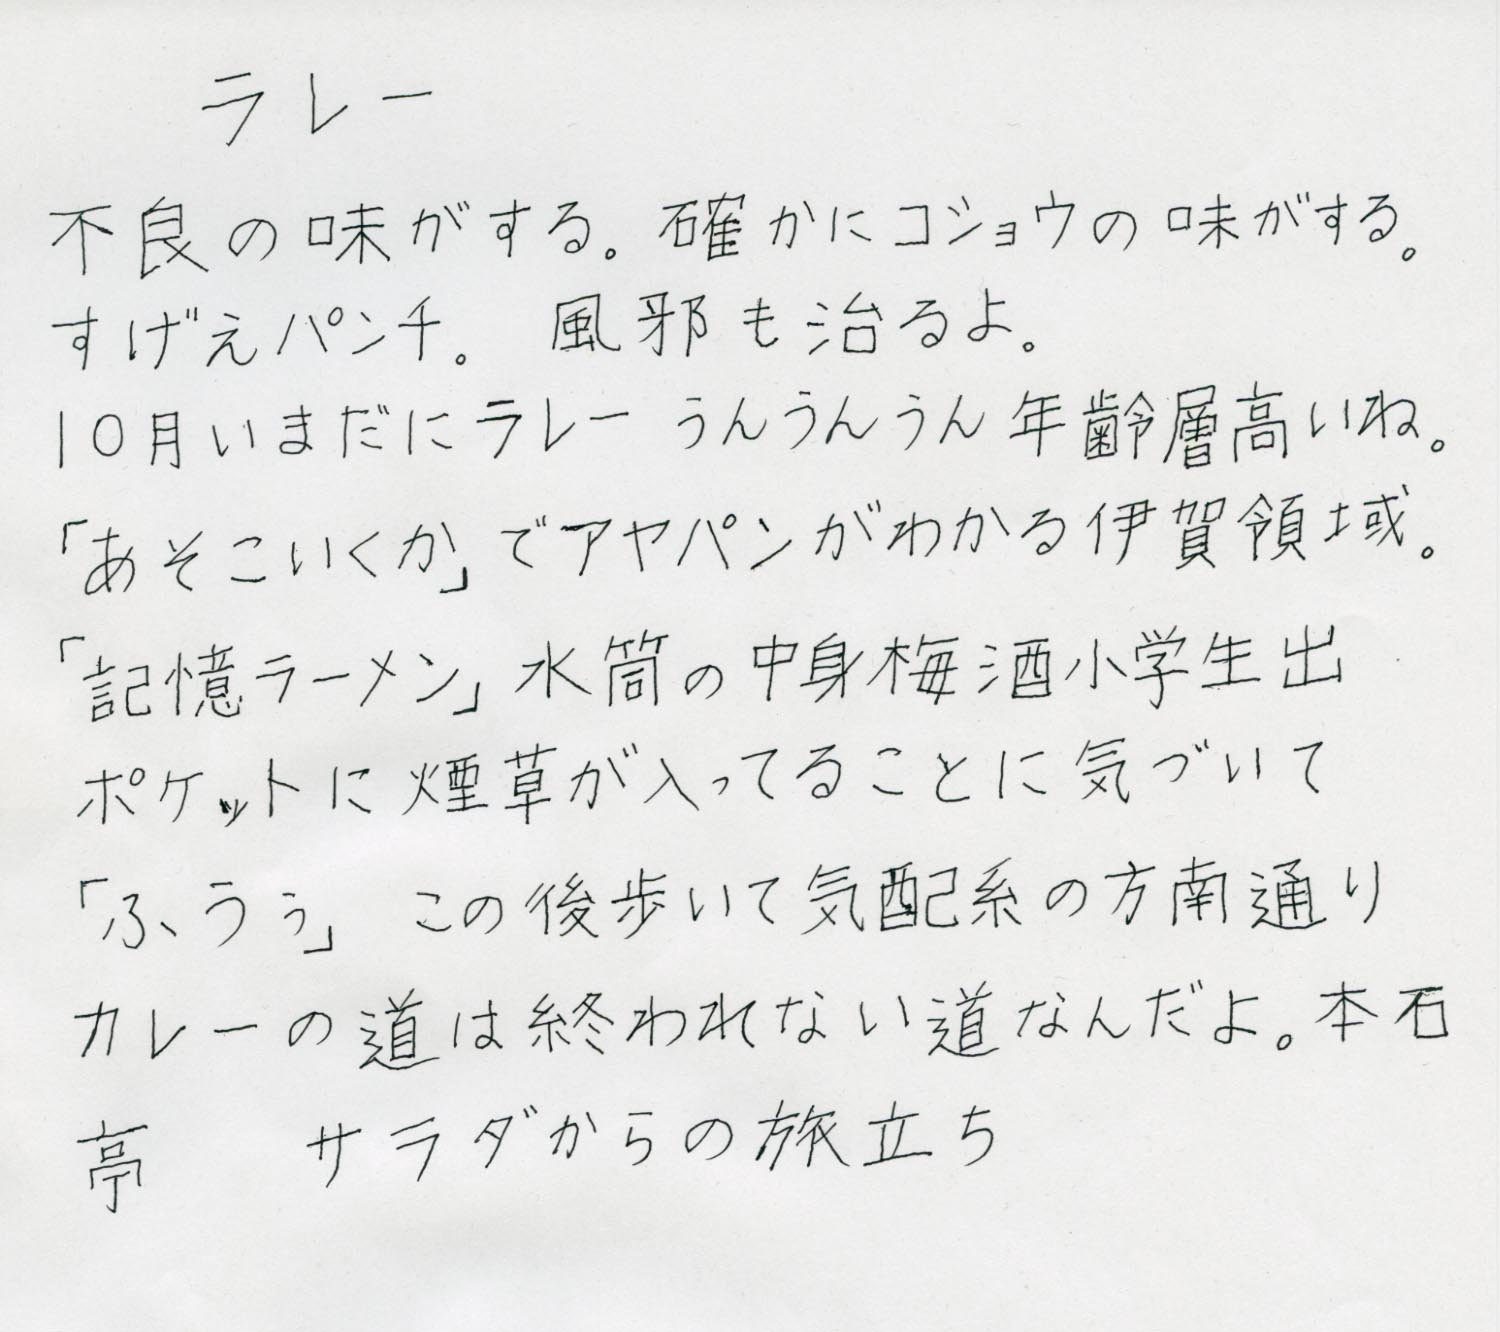 ラレー
不良の味がする。確かにコショウの味がする。
すげえパンチ。 風邪も治るよ。
10月いまだにラレー うんうんうん年齢層高いね。
「あそこいくか」でアヤパンがわかる伊賀領域。
「記憶ラーメン」水筒の中身梅酒小学生出
ポケットに煙草が入ってることに気づいて
「ふうぅ」 この後歩いて気配系の方南通り
カレーの道は終われない道なんだよ。本石
亭 サラダからの旅立ち